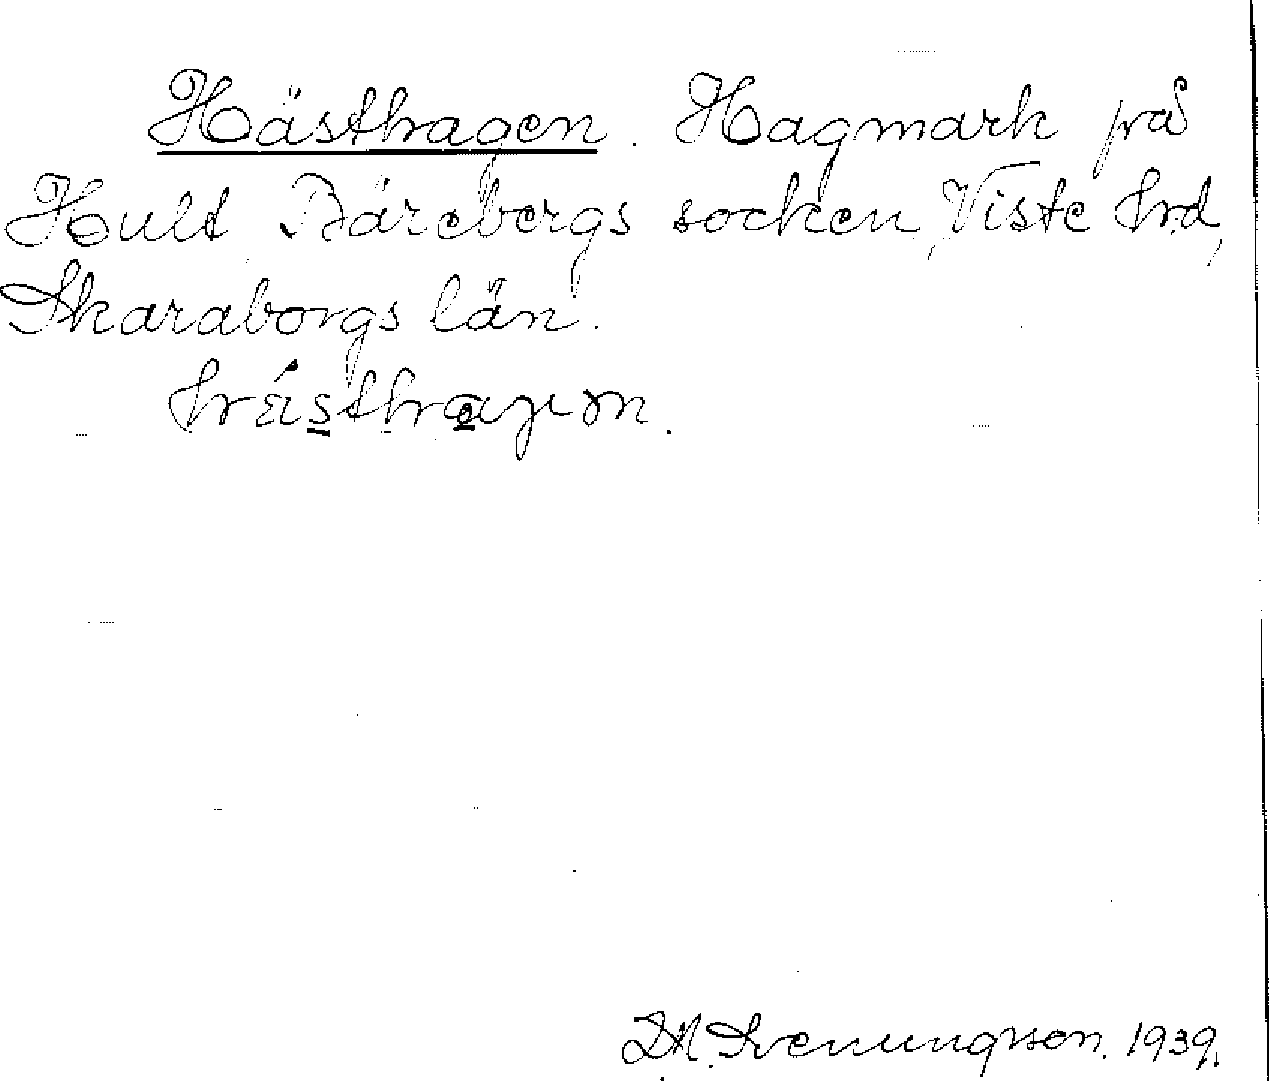 Hästhagen. Hagmark på
Hult Bärebergs socken, Viste hd,
Skaraborgs län.
D.N. Svenungsson. 1939.